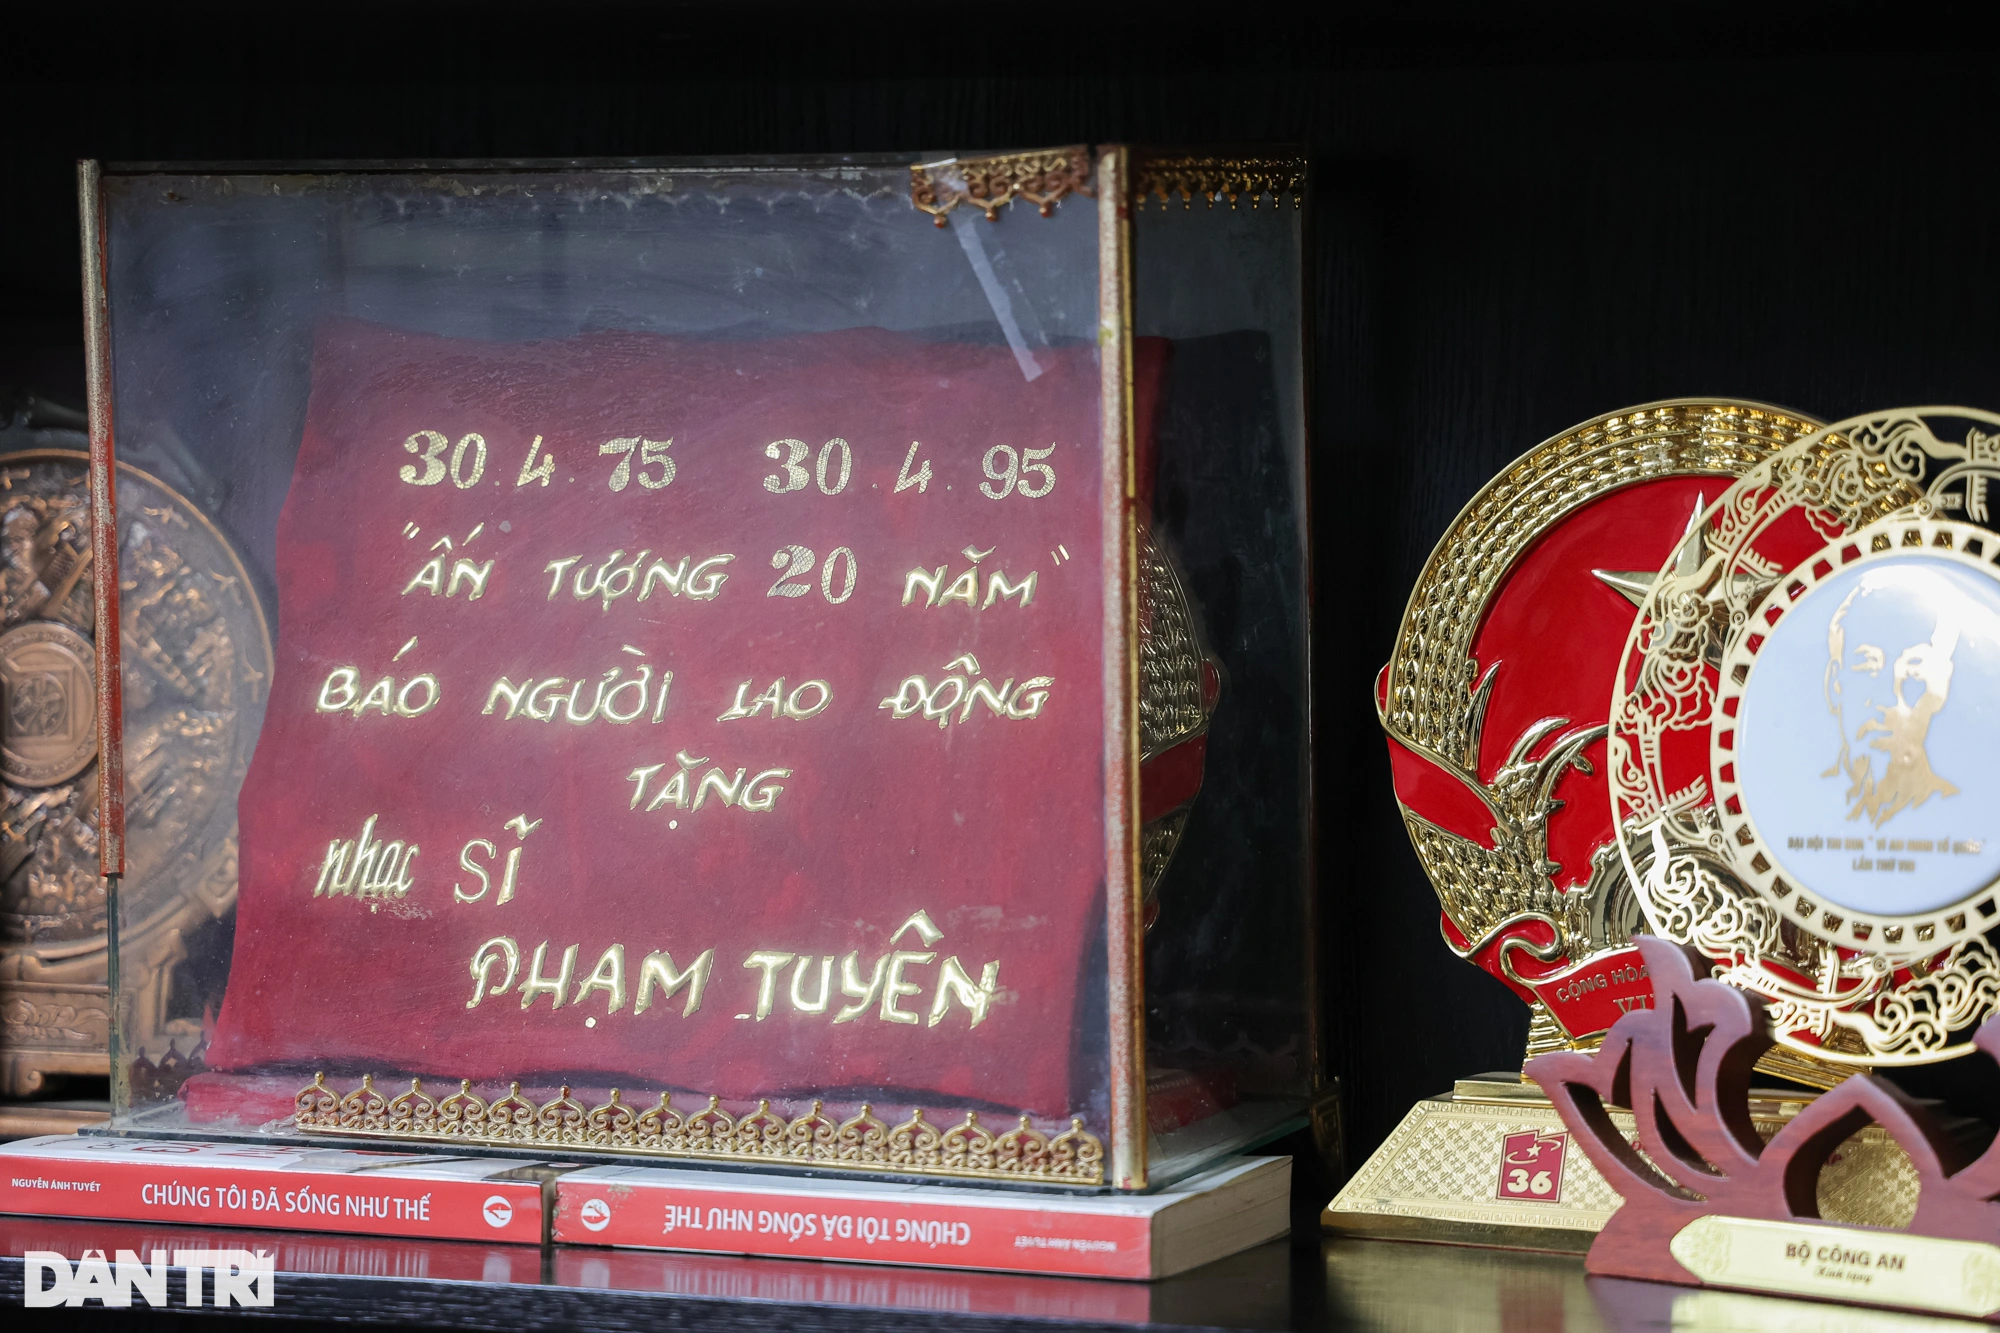 30.4.75 30.4.95
"ẤN TƯỢNG 20 NĂM"
BÁO NGƯỜI LAO ĐỘNG
TẶNG
nhạc sĩ
PHẠM TUYÊN
NGUYỄN ÁNH TUYẾT CHÚNG TÔI ĐÃ SỐNG NHƯ THẾ
CHÚNG TÔI ĐÃ SỐNG NHƯ THẾ NGUYỄN ÁNH TUYẾT
CỘNG HÒA
36
ĐẠI HỘI THI ĐUA "VÌ AN NINH TỔ QUỐC"
LẦN THỨ VIII
BỘ CÔNG AN
Kính tặng
DÂN TRÍ